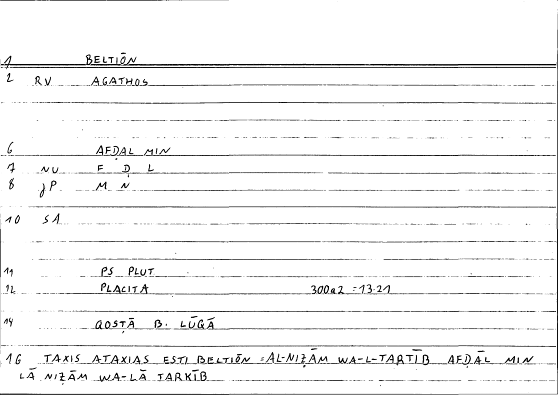 1 BELTIŌN
2 RV AGATHOS
6 AFḌAL MIN
7 NU F Ḍ L
8 JP M N
10 SA
11 PS PLUT
12 PLACITA 300a2 = 13.21
14 QOSṬĀ B. LŪQĀ
16 TAXIS ATAXIAS ESTI BELTIŌN = AL-NIẒĀM WA-L-TARTĪB AFḌAL MIN
LĀ NIẒĀM WA-LĀ TARKĪB